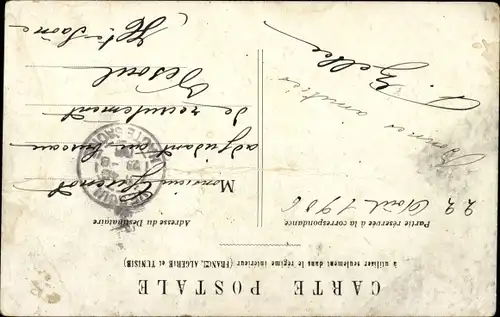 CARTE POSTALE
à utiliser seulement dans le régime intérieur (FRANCE, ALGÉRIE et TUNISIE)
Partie réservée à la correspondance
22 Août 1906
Bonnes amitiés
Adresse du Destinataire
Monsieur
adjudant au bureau
de recrutement
Vesoul
Hte Saône